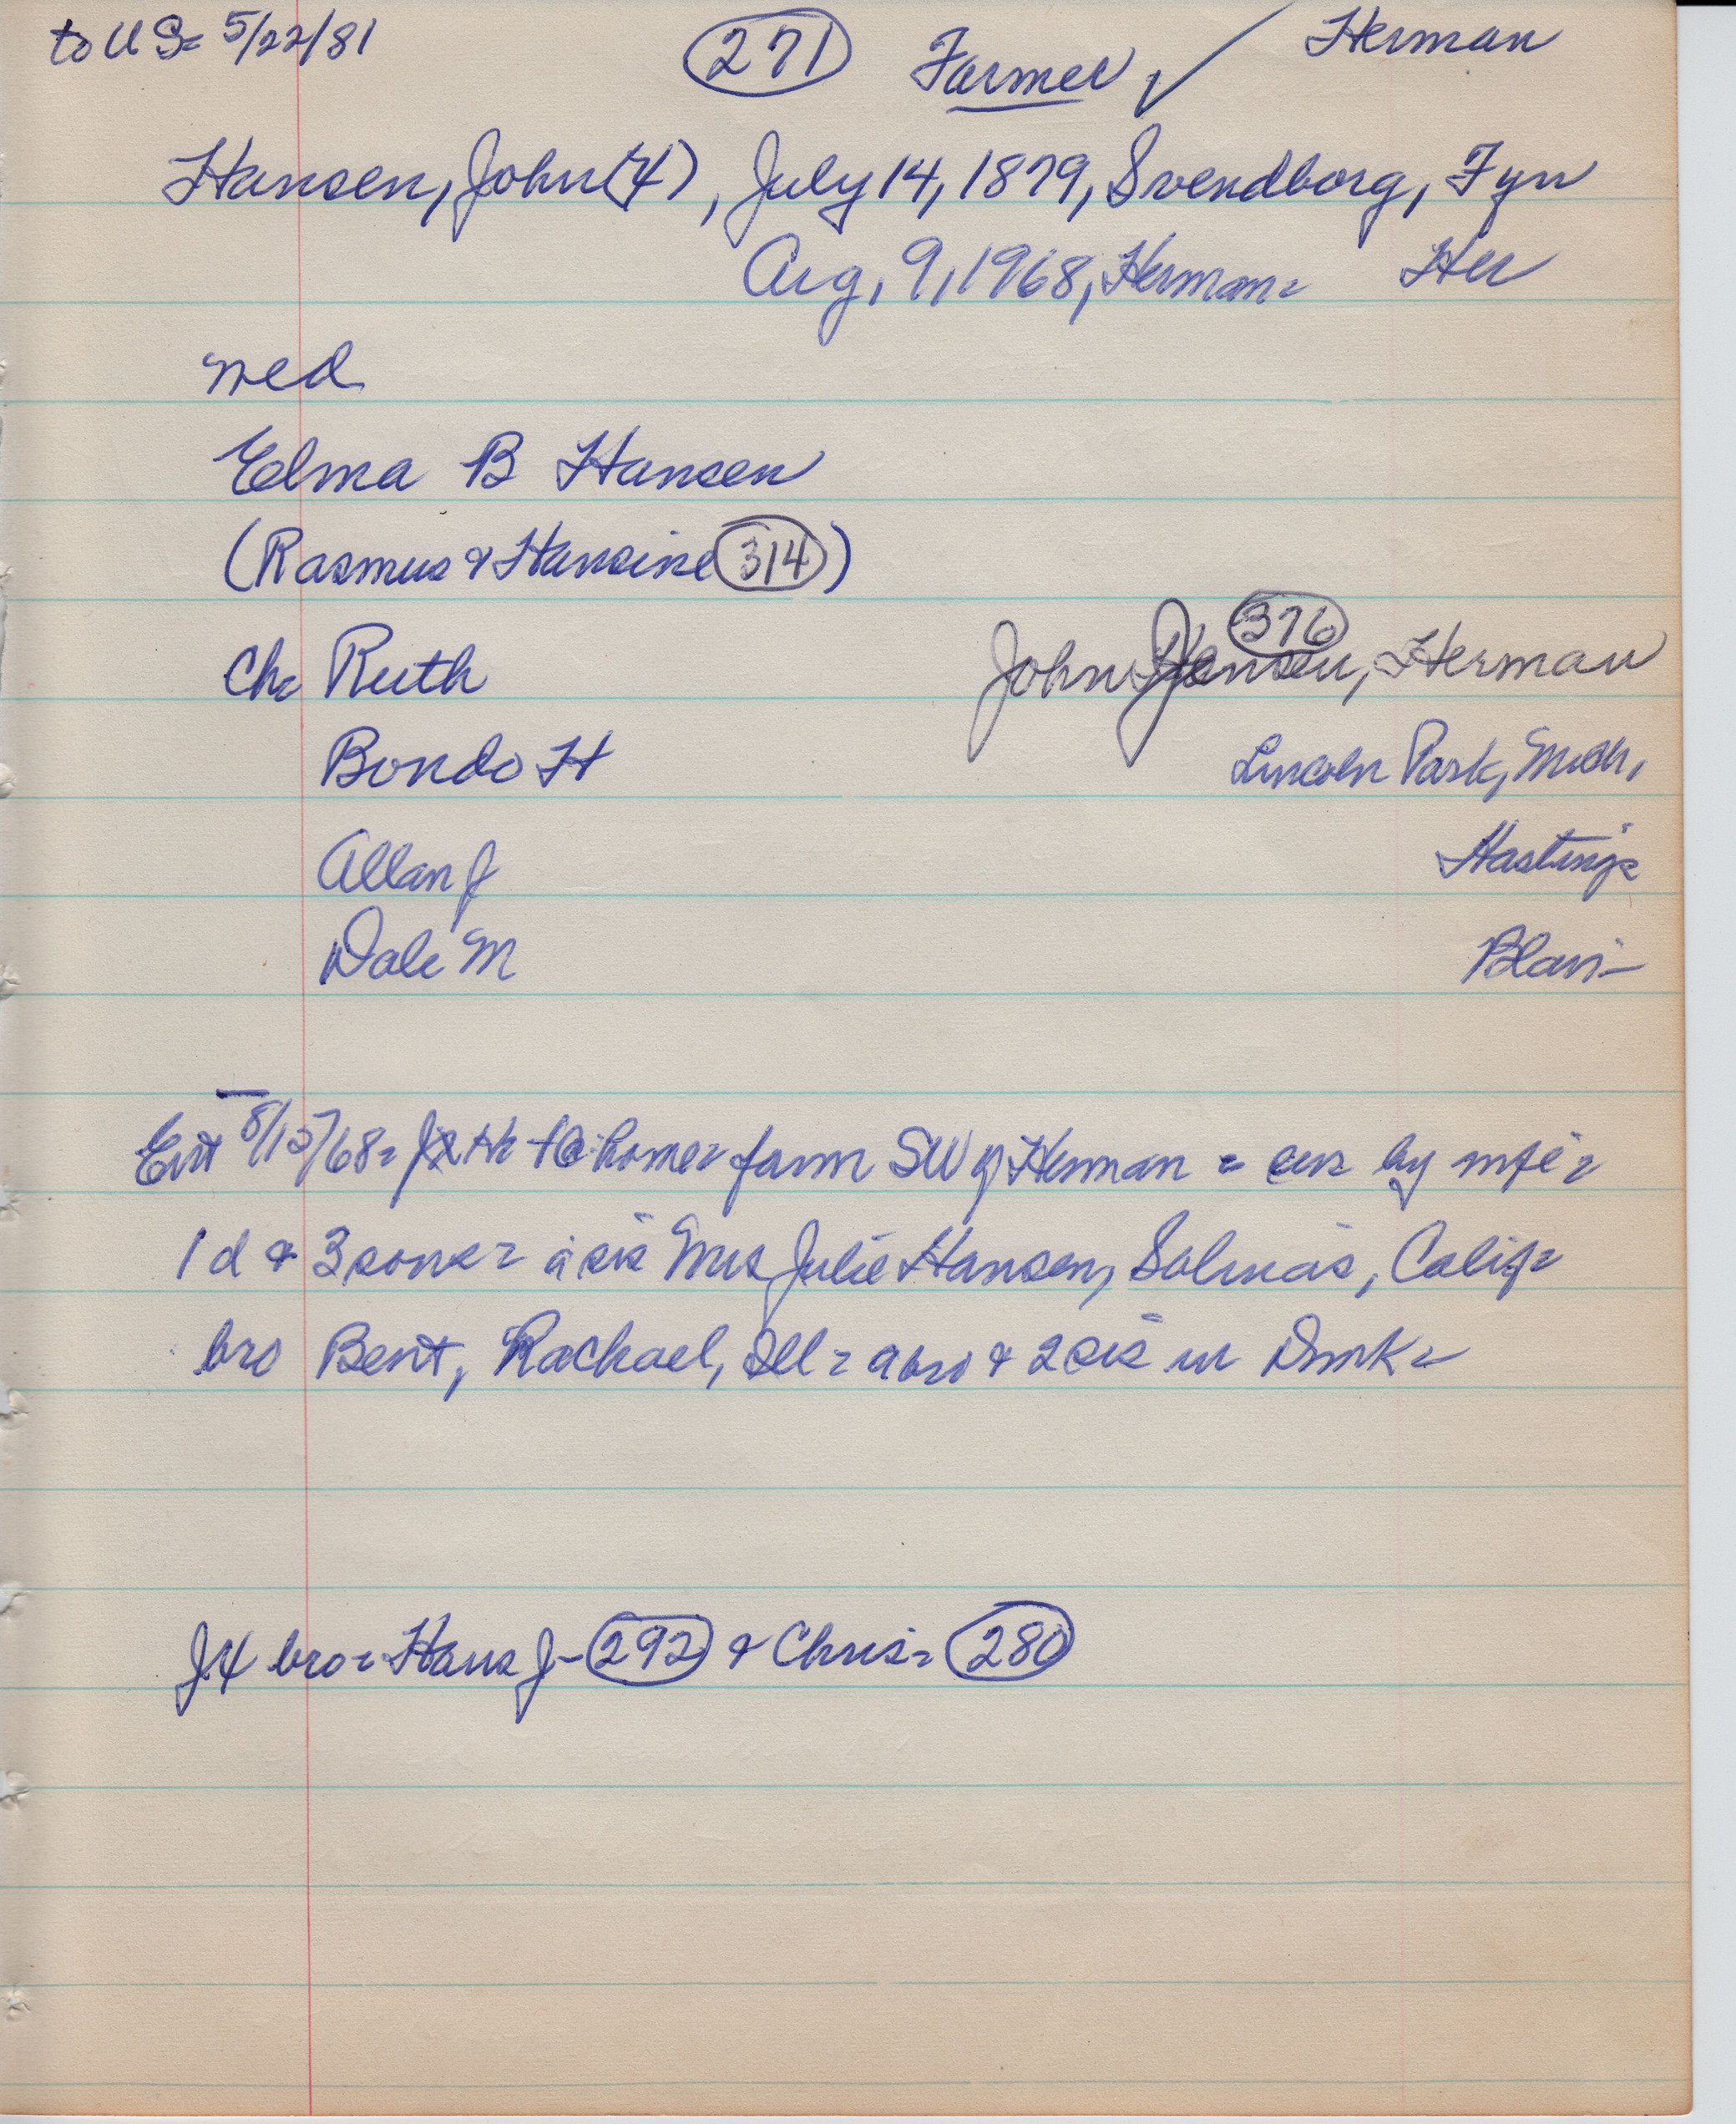 to US= 5/22/81 (271) Farmer ✓ Herman
Hansen, John (4), July 14, 1879, Svendborg, Fyn
Aug, 9, 1968, Herman= Her
wed
Elma B Hansen
(Rasmus & Hansine (314))
(376)
Ch= Ruth John Jensen, Herman
Bondo H Lincoln Park, Mich,
Allan J Hastings
Dale M Blair
Ent 8/15/68= home= farm SW of Herman = sur by wife=
1 d & 3 sons= a sis Mrs Julie Hansen, Salinas, Calif=
bro Bent, Rachael, Ill= a bro & 2 sis in Dmk=
J4 bro= Hans J- (292) & Chris= (280)